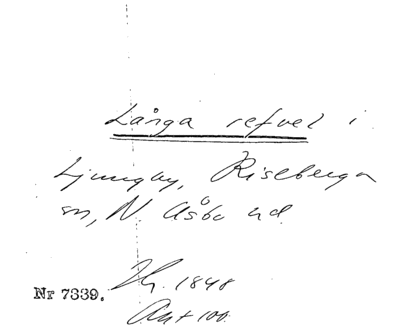 Långa refvel i
Ljungby, Riseberga
sn, N. Åsbo hd.
Nr 7339. 1848
Ant 100.